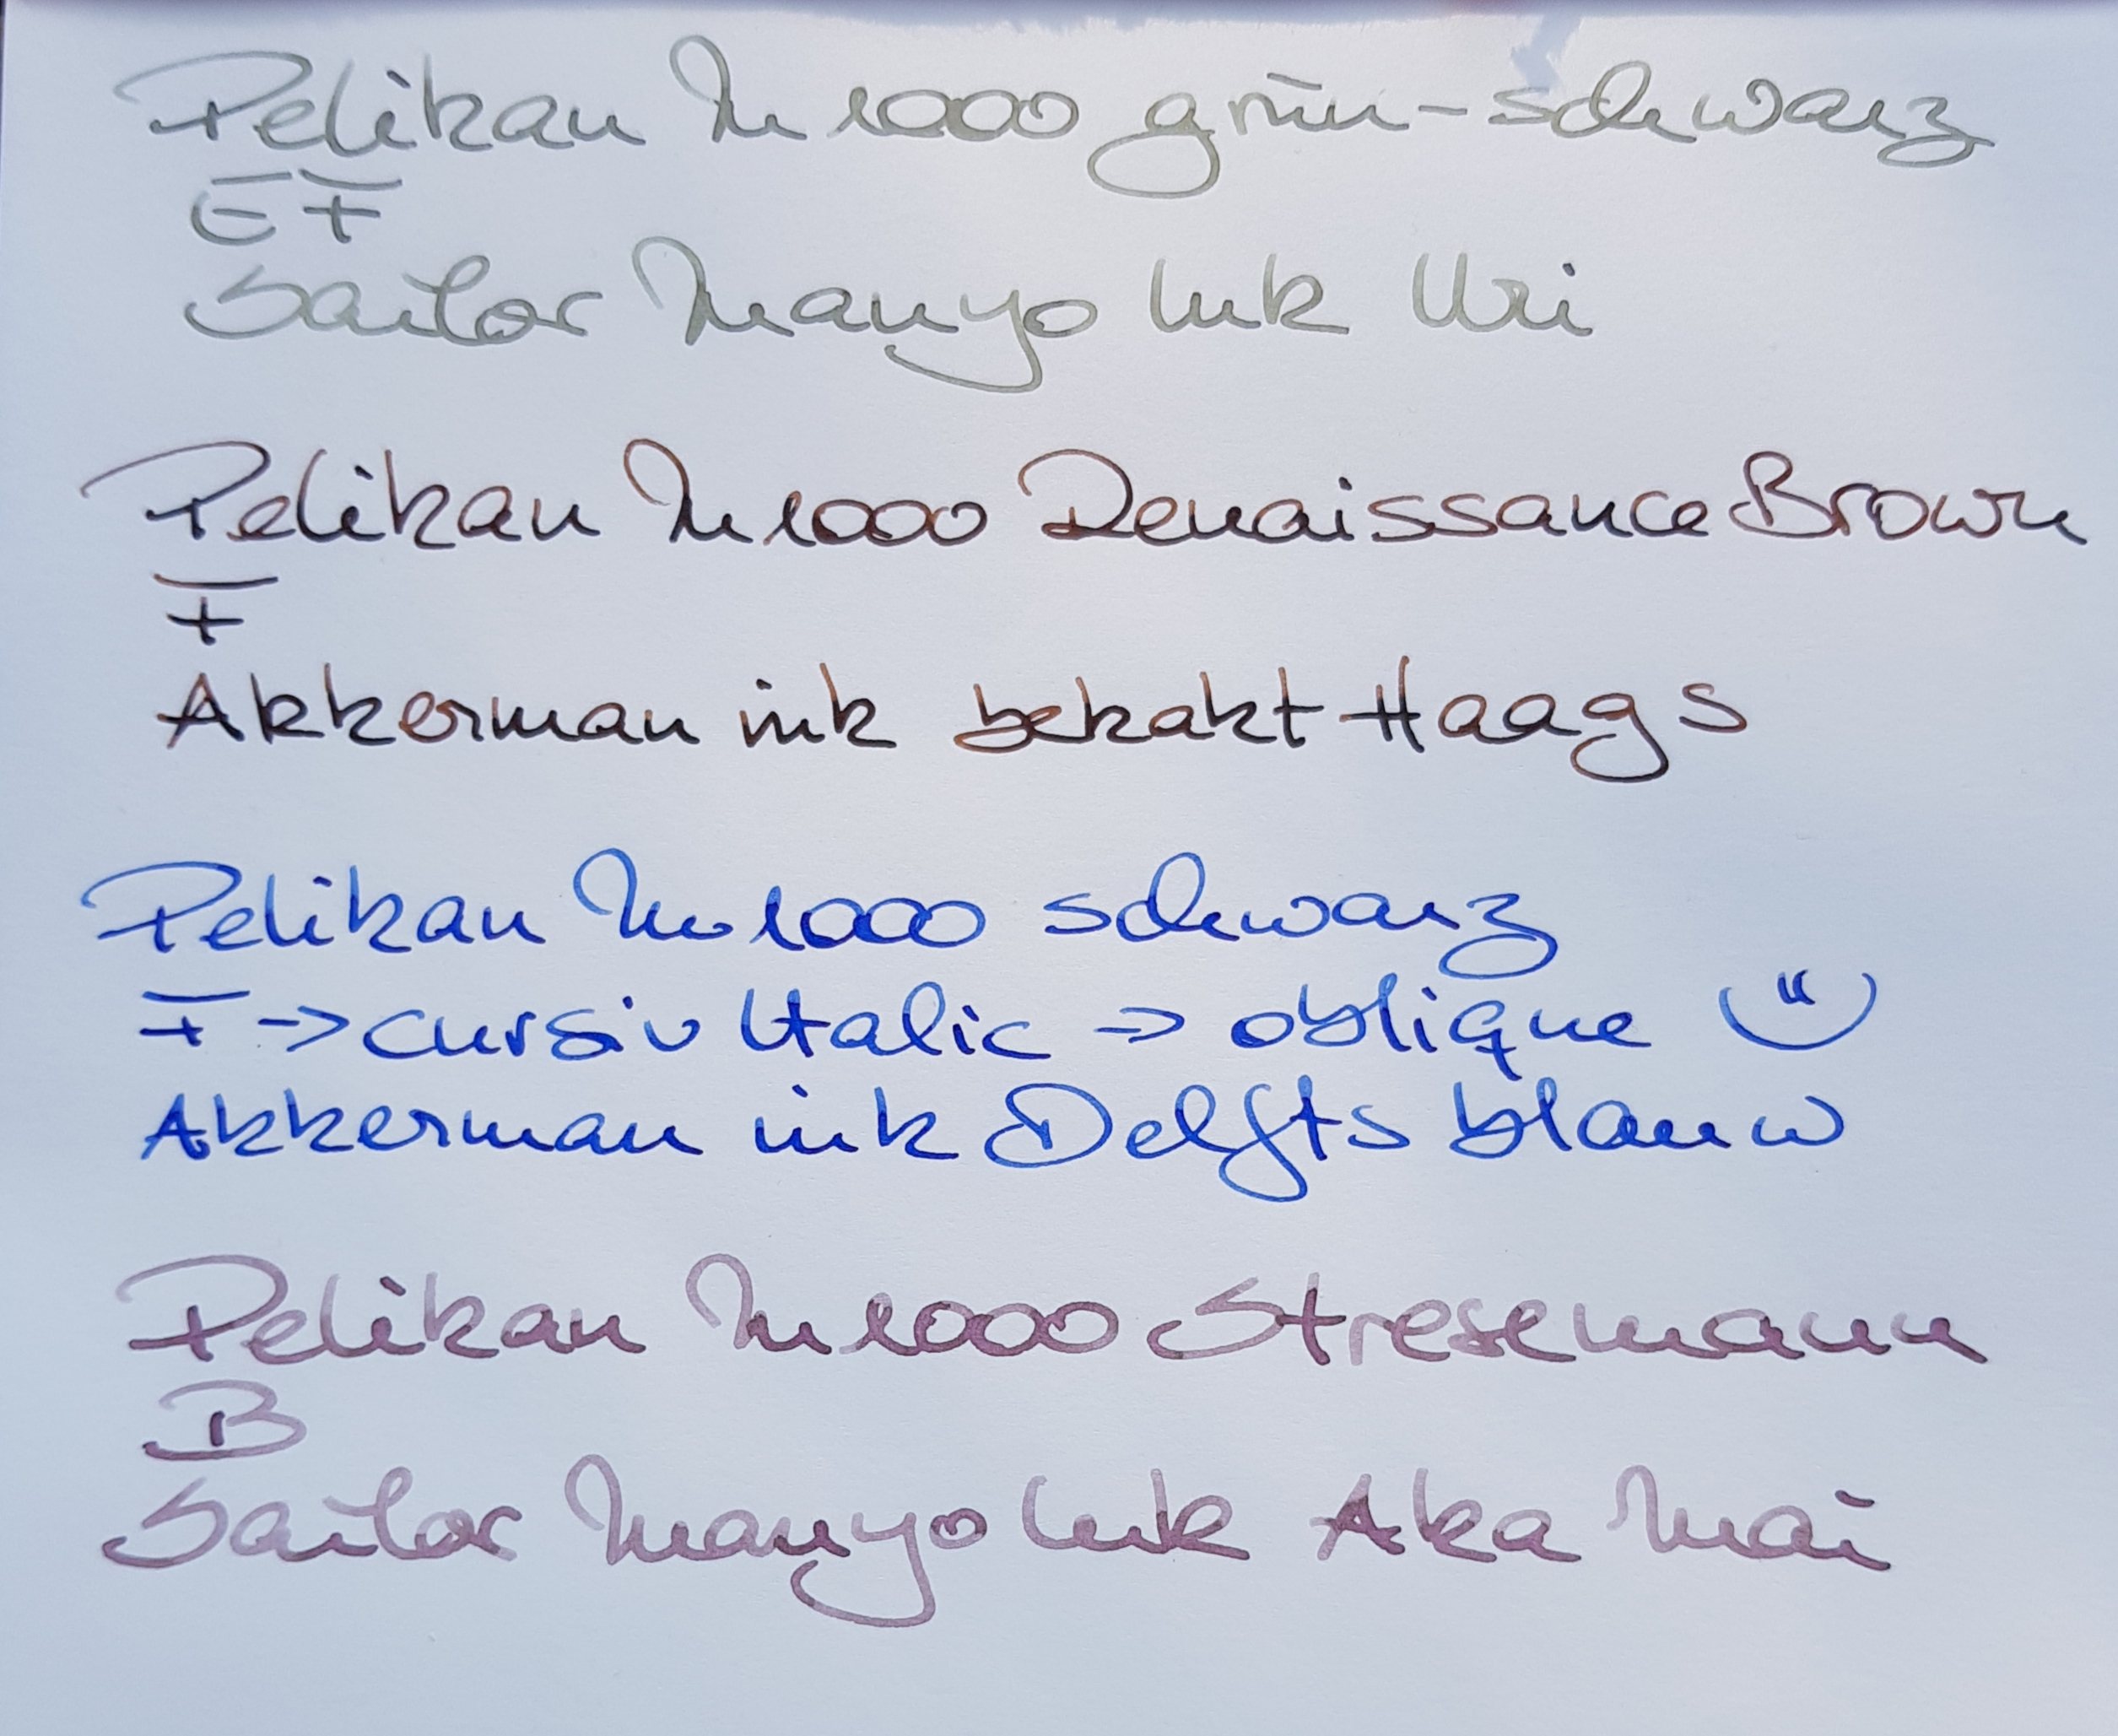 Pelikan M1000 grün-schwarz
EF
Sailor Manyo Ink Uri
Pelikan M1000 Renaissance Brown
F
Akkerman ink bekakt Haags
Pelikan M1000 schwarz
F → cursiv Italic → oblique
Akkerman ink Delfts blauw
Pelikan M1000 Stresemann
B
Sailor Manyo Ink Aka Mai